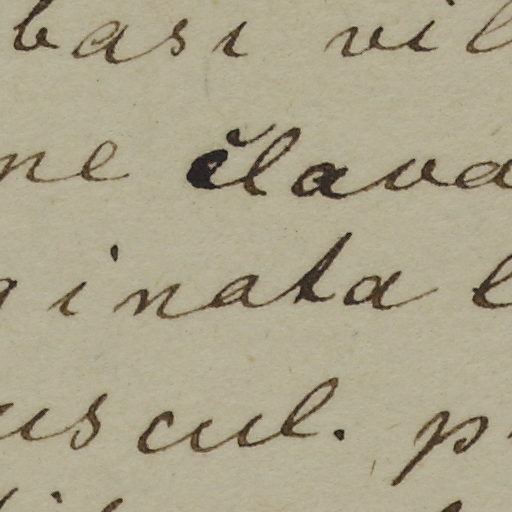 basi vil
ne člava
ginata l
uscul. p